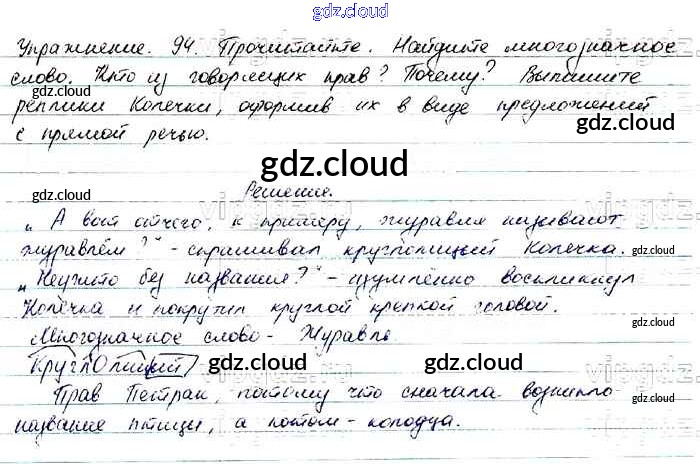 gdz.cloud
Упражнение. 94. Прочитайте. Найдите многозначное
слово. Кто из говорящих прав? Почему? Выпишите
gdz.cloud gdz.cloud
реплики Копечки, оформив их в виде предложений
с прямой речью.
gdz.cloud
gdz.cloud
gdz.cloud Решение.
„А вот отчего, к примеру, журавля называют
журавлём?" - спрашивал круглолицый Копечка.
gdz.cloud
„Неужто без названия?" - изумлённо воскликнул
Копечка и покрутил круглой крепкой головой.
gdz.cloud
Многозначное слово - Журавль
КруглОлицый
gdz.cloud gdz.cloud
Прав Петрак, потому что сначала возникло
gdz.cloud
название птицы, а потом - колодца.
gdz.cloud